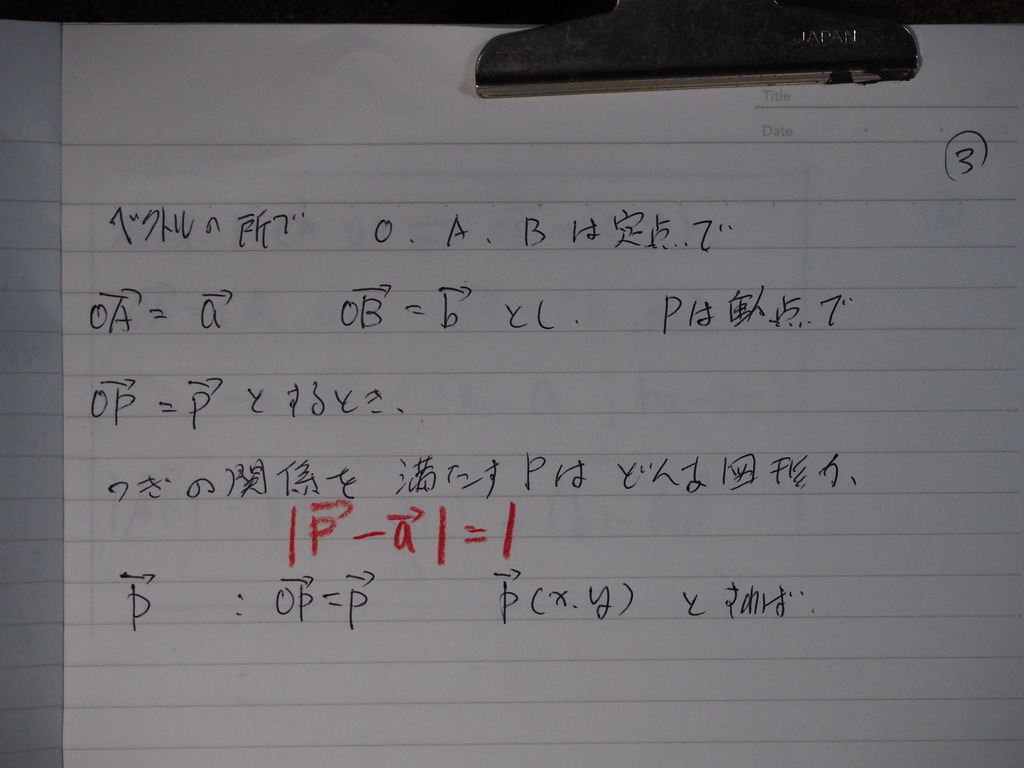 JAPAN
Title
Date
③
ベクトルの所で O、A、B は定点で
$\overrightarrow{OA} = \vec{a}$ $\overrightarrow{OB} = \vec{b}$ とし、 Pは動点で
$\overrightarrow{OP} = \vec{p}$ とするとき、
つぎの関係を 満たす Pは どんな図形か、
$|\vec{p} - \vec{a}| = 1$
$\vec{p}$ : $\overrightarrow{OP} = \vec{p}$ $\vec{p}$(x.y) とすれば、